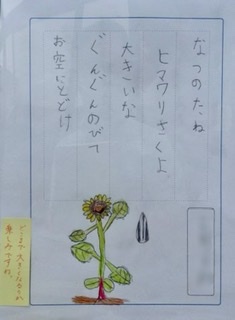 なつのたね
ヒマワリさくよ
大きいな
ぐんぐんのびて
お空にとどけ
どこまで大きくなるか
楽しみですね。